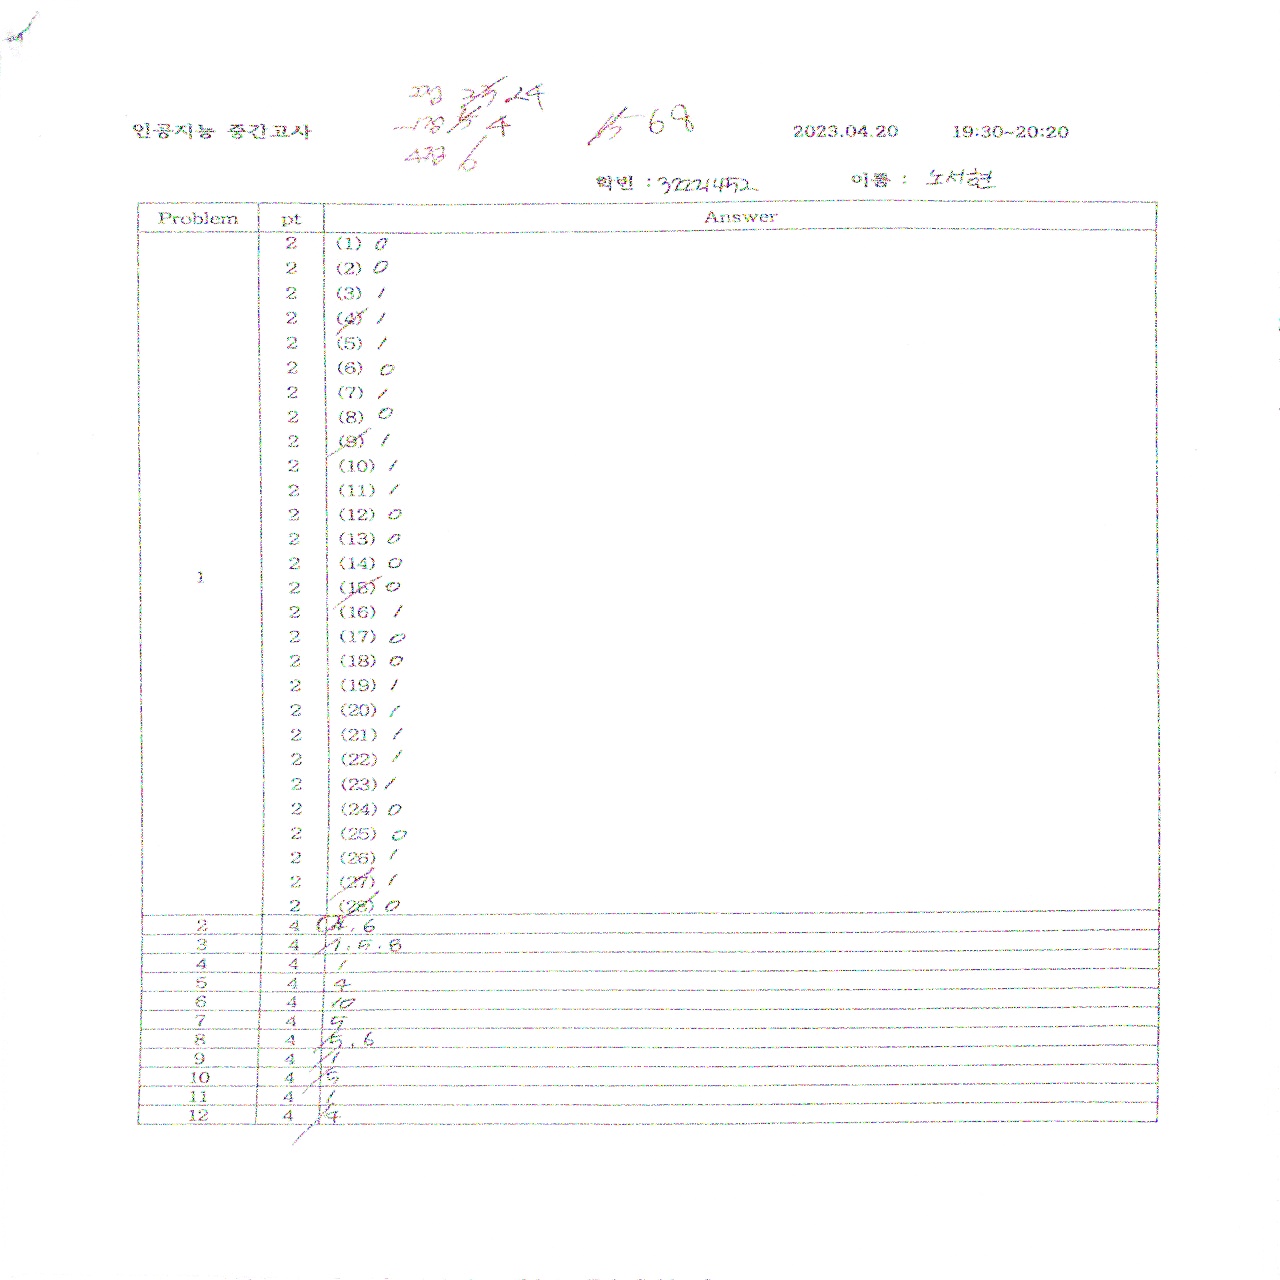 2점 23 24
1점 5 4
4점 6
15 68
인공지능 중간고사 2023.04.20 19:30~20:20
학번 : 32221452 이름 : 노서현
Problem pt Answer
1
2 (1) 0
2 (2) 0
2 (3) 1
2 (4) 1
2 (5) 1
2 (6) 0
2 (7) 1
2 (8) 0
2 (9) 1
2 (10) 1
2 (11) 1
2 (12) 0
2 (13) 0
2 (14) 0
2 (15) 0
2 (16) 1
2 (17) 0
2 (18) 0
2 (19) 1
2 (20) 1
2 (21) 1
2 (22) 1
2 (23) 1
2 (24) 0
2 (25) 0
2 (26) 1
2 (27) 1
2 (28) 0
2 4 6
3 4 1.5.8
4 4 1
5 4 4
6 4 10
7 4 5
8 4 5.6
9 4 1
10 4 5
11 4 1
12 4 4